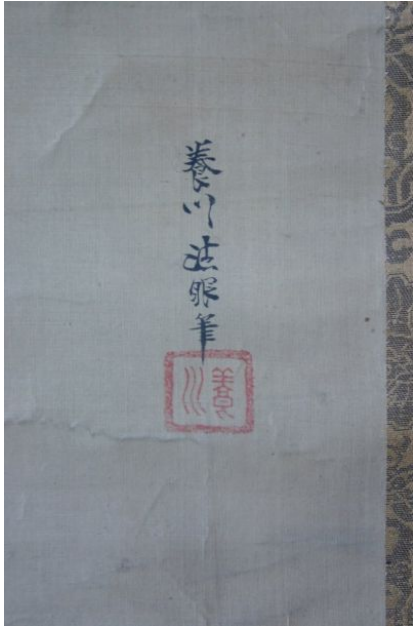 養川法眼筆
養川